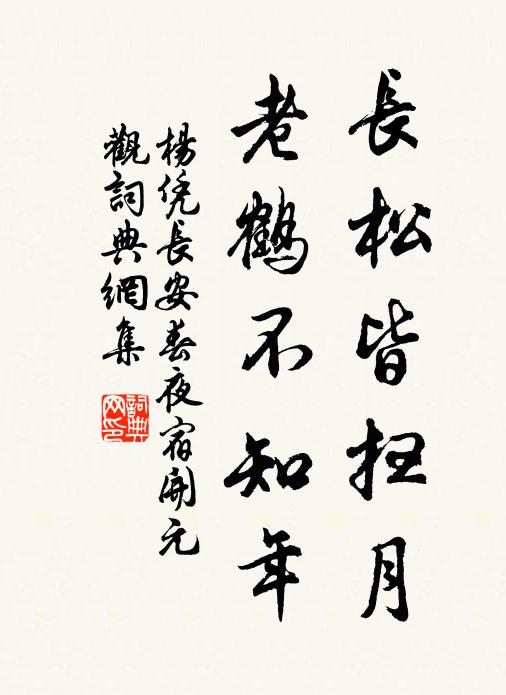 長松皆扫月
老鶴不知年
楊凭長安春夜宿開元
觀詞典網集
詞典网印